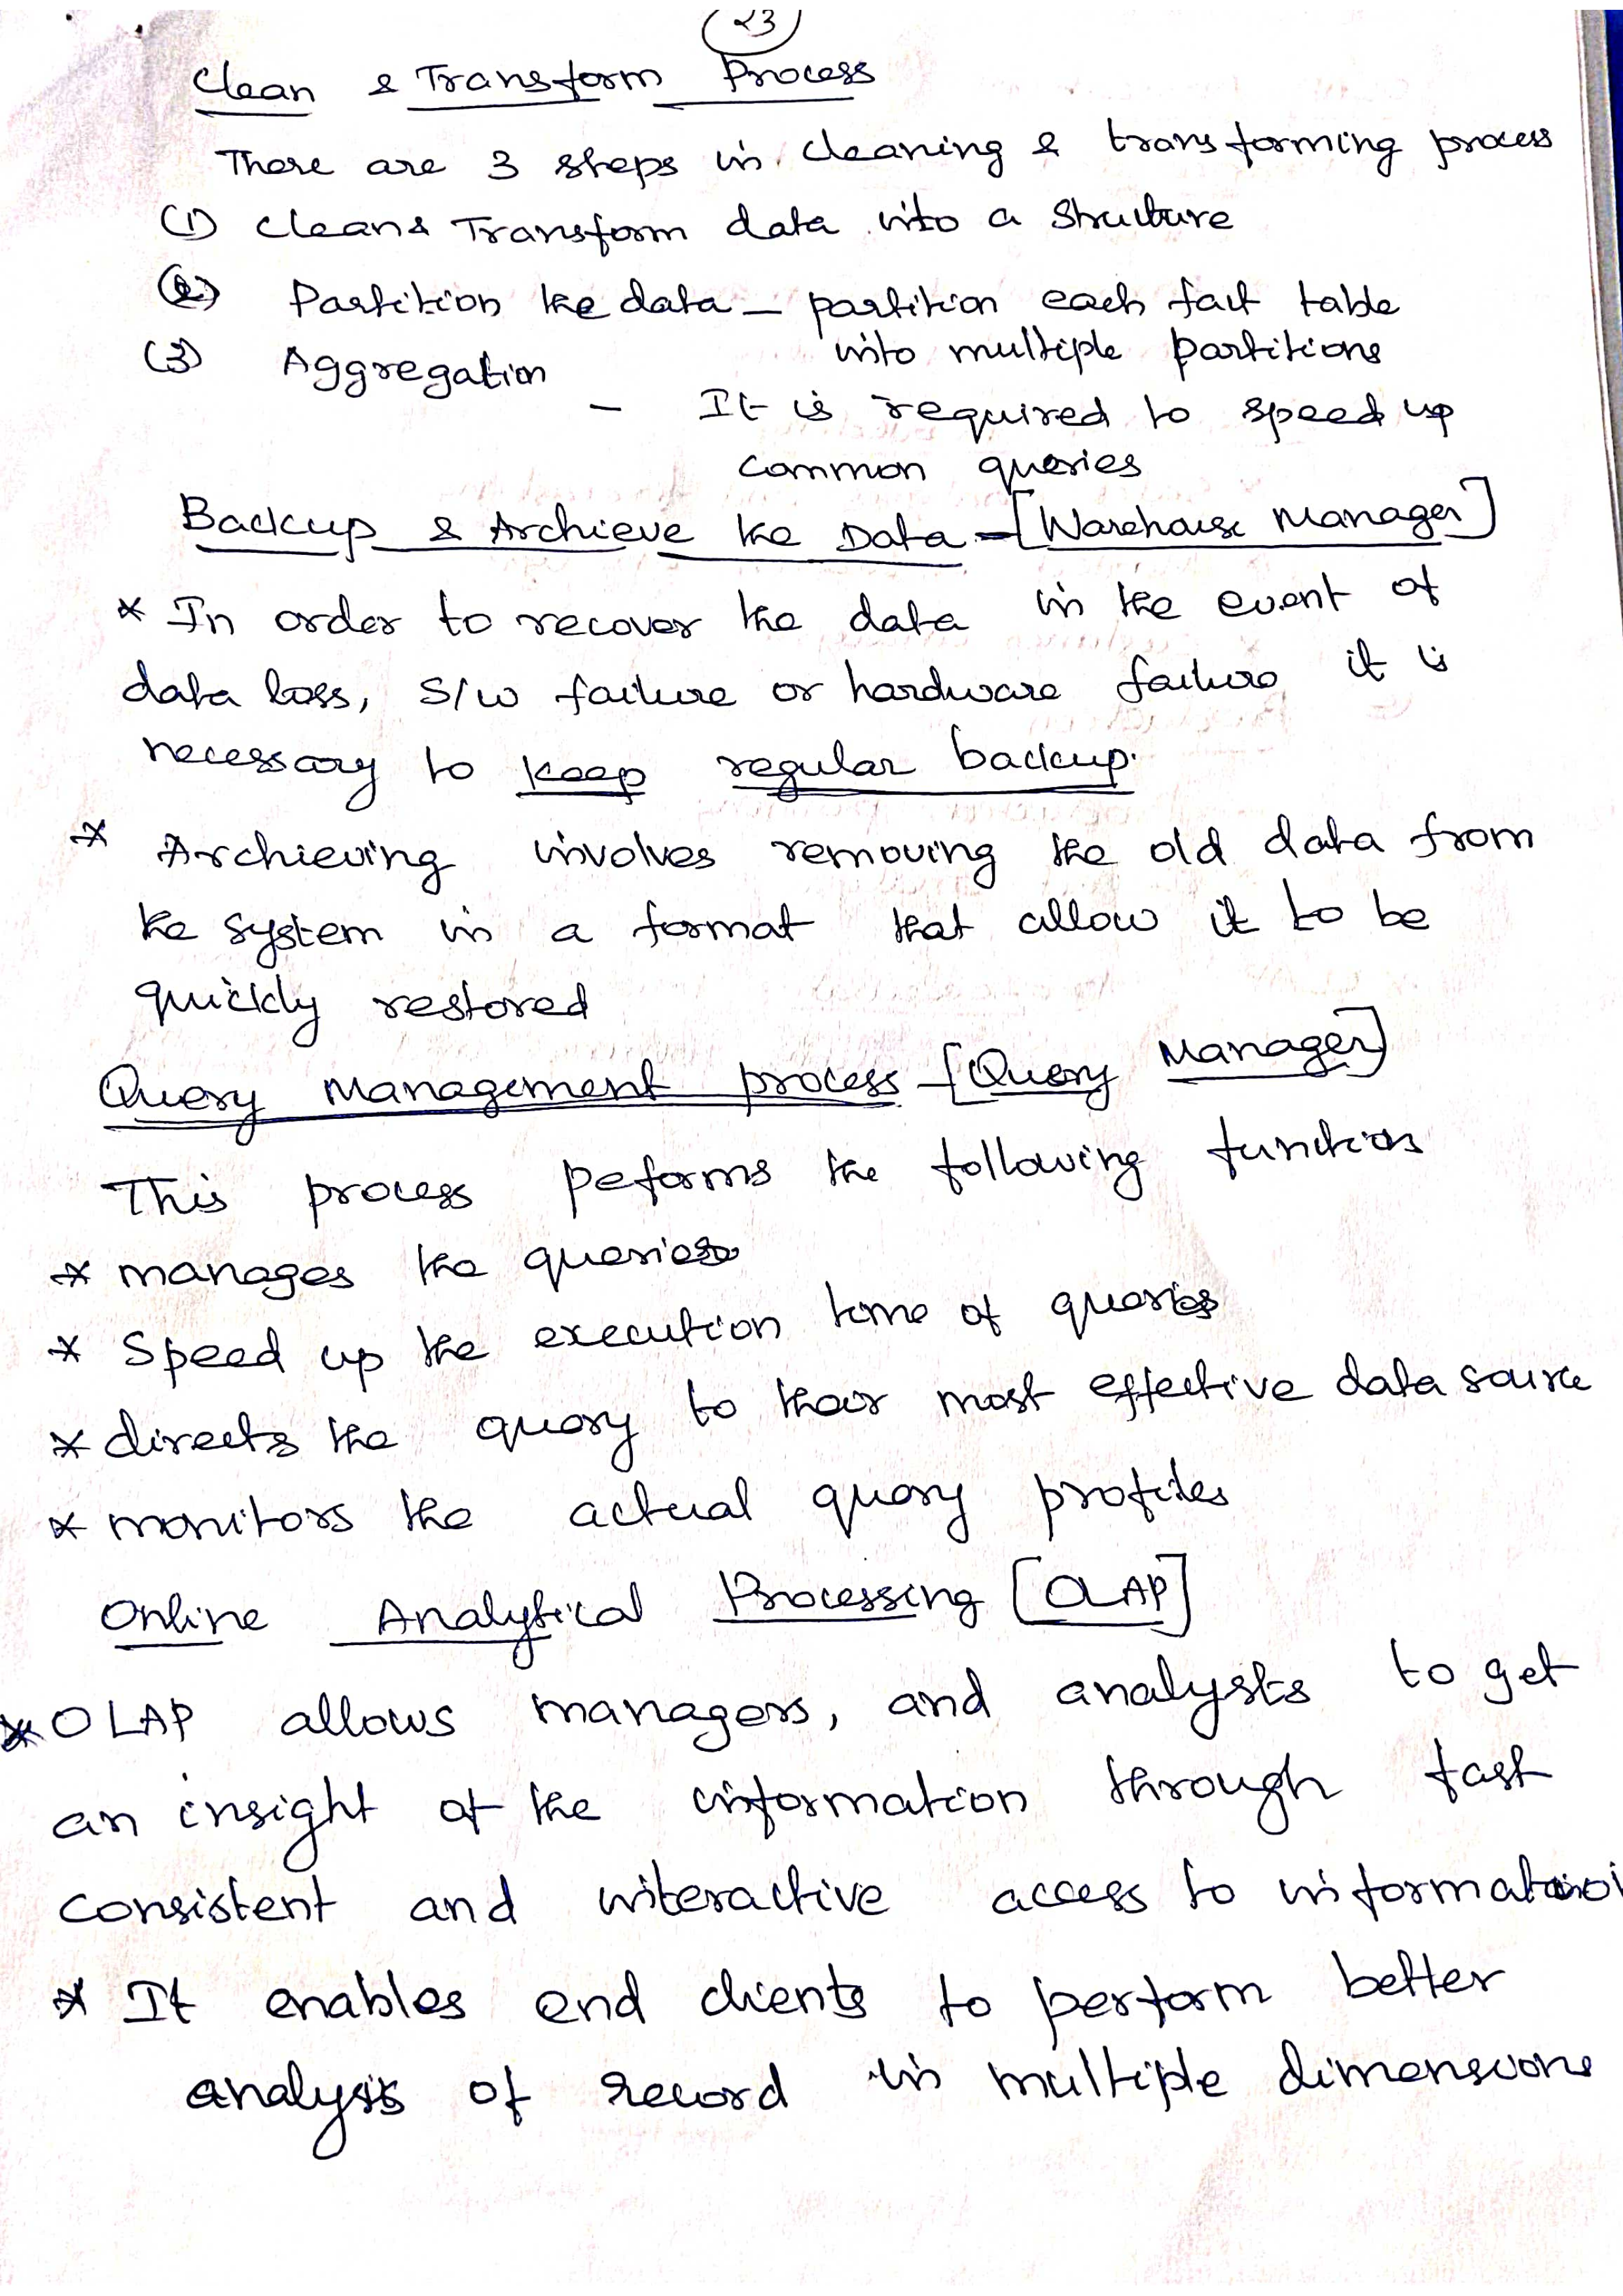 23
Clean & Transform Process
There are 3 steps in cleaning & transforming process
(1) clean & Transform data into a structure
(2) Partition the data – partition each fact table
into multiple partitions
(3) Aggregation
– It is required to speed up
common queries
Backup & Archieve the Data – [Warehouse Manager]
* In order to recover the data in the event of
data loss, S/w failure or hardware failure it is
necessary to keep regular backup.
* Archieving involves removing the old data from
the system in a format that allow it to be
quickly restored
Query Management process – [Query Manager]
This process peforms the following functions
* manages the queries
* Speed up the execution time of queries
* directs the query to their most effective data source
* monitors the actual query profiles
Online Analytical Processing [OLAP]
* OLAP allows managers, and analysts to get
an insight of the information through fast
consistent and interactive access to information
* It enables end clients to perform better
analysis of record in multiple dimensions